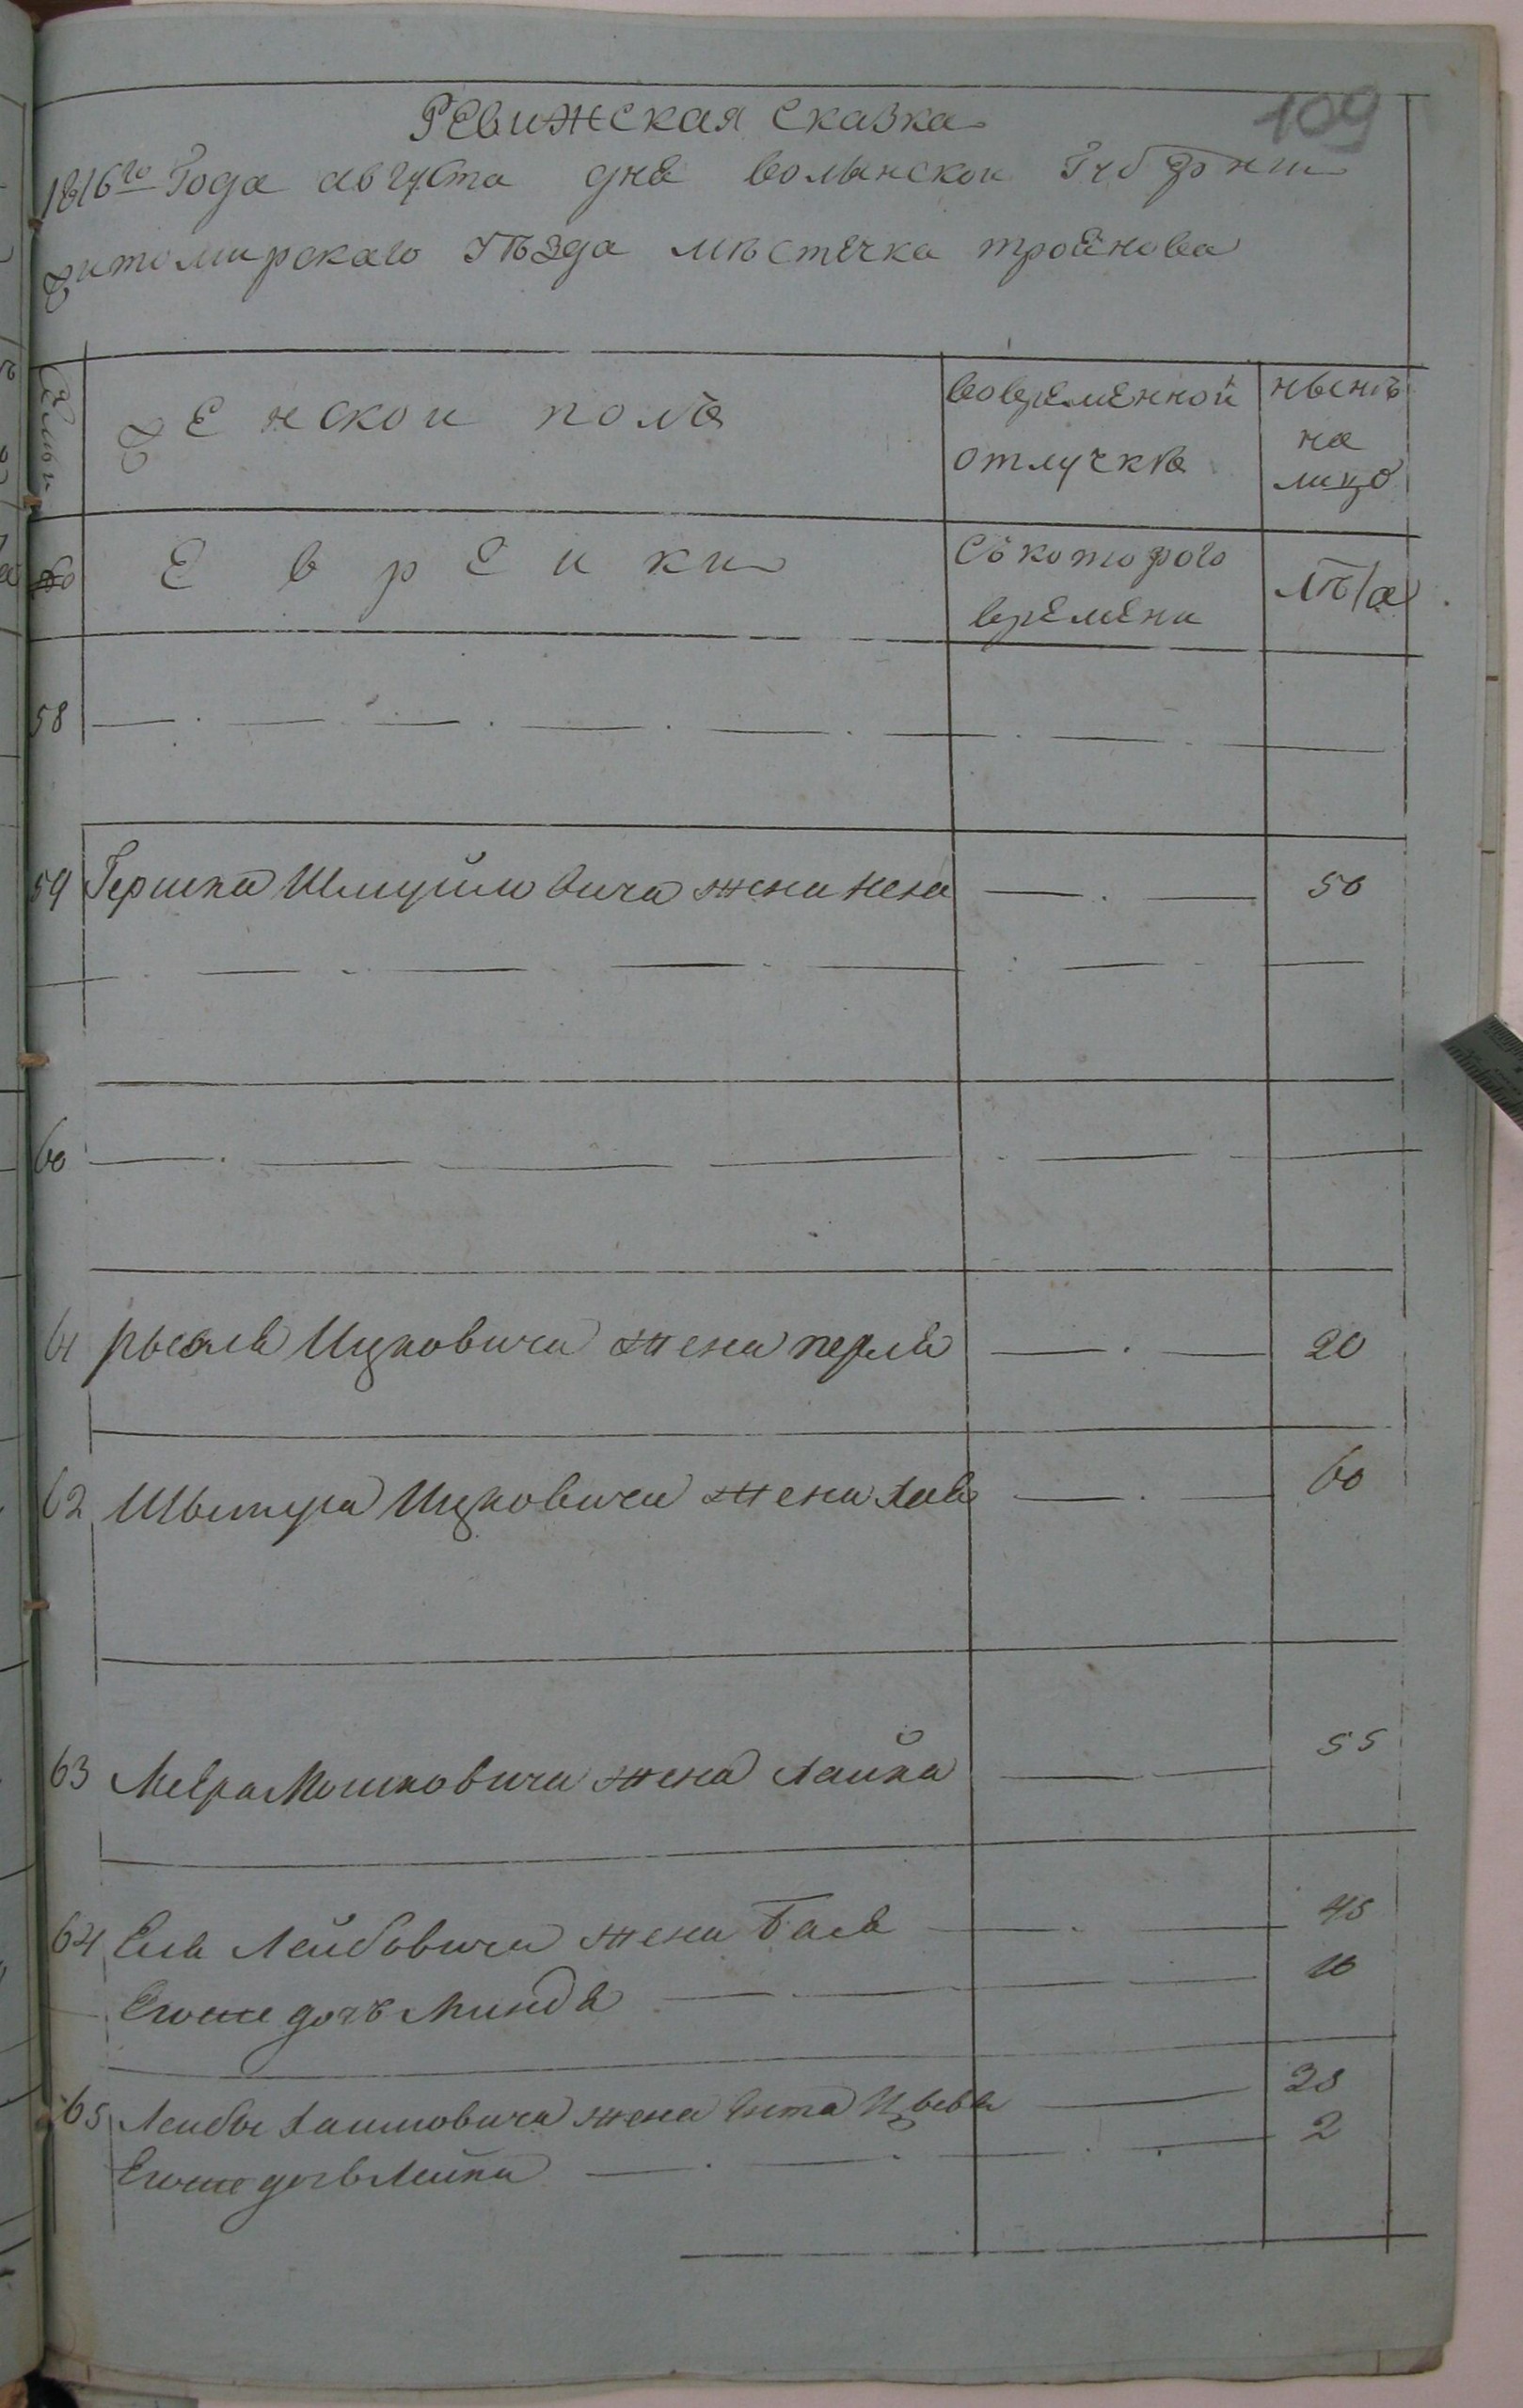 109
Ревижская сказка
1816го Года августа дня волынской Губернии
житомирскаго уѣзда мѣстечка троенова
Семьи
Женской полъ
вовременной
отлучкѣ
нынѣ
на
лицо
№
Евреики
Съ которого
времени
лѣта
58
59 Гершка Шмуйловича жена Неха 50
60
61 рысаля Ицковича жена перля 20
62 Шмера Ицковича жена хая 60
63 Меера Мошковича жена хайка 55
64 Еля Лейбовича жена Бася 45
Егоже дочь Минда 16
65 Лейбы хаимовича жена Ента Цывья 28
Егоже дочь Лейка 2